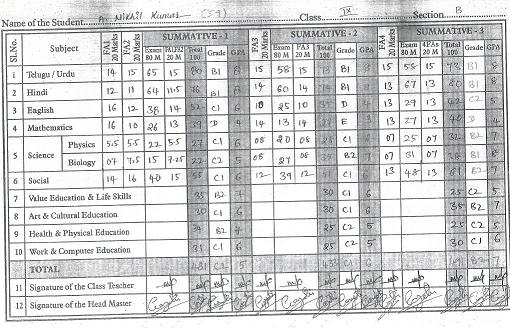 Name of the Student A. Nikhil Kumar (59) Class IX Section B
Sl.No. Subject FA1 20 Marks FA2 20 Marks SUMMATIVE - 1 FA3 20 Marks SUMMATIVE - 2 FA4 20 Marks SUMMATIVE - 3
Exam 80 M FA1,FA2 20 M Total 100 Grade GPA Exam 80 M FA3 20 M Total 100 Grade GPA Exam 80 M 4FAs 20 M Total 100 Grade GPA
1 Telugu / Urdu 14 15 65 15 80 B1 8 15 58 15 73 B1 8 15 58 15 73 B1 8
2 Hindi 12 11 64 11.5 B1 8 14 60 14 B1 8 13 67 13 80 B1 8
3 English 16 12 38 14 52 C1 6 10 25 10 D 4 13 29 13 42 C2 5
4 Mathematics 16 10 26 13 39 D 4 14 13 14 E 3 13 27 13 40 D 4
5 Science Physics 5.5 5.5 22 5.5 27 C1 6 08 20 08 28 C1 6 07 25 07 32 B2 7
Biology 07 7.5 15 7.25 22 C2 5 08 27 08 B2 7 07 31 07 38 B1 8
6 Social 14 16 40 15 55 C1 6 12 39 12 51 C1 6 13 48 13 61 B2 7
7 Value Education & Life Skills 35 B2 7 30 C1 6 25 C2 5
8 Art & Cultural Education 30 C1 6 30 C1 6 35 B2 7
9 Health & Physical Education 34 B2 7 25 C2 5 25 C2 5
10 Work & Computer Education 31 C1 6 25 C2 5 30 C1 6
TOTAL 431 C2 5 C1 6 B2 7
11 Signature of the Class Teacher
12 Signature of the Head Master